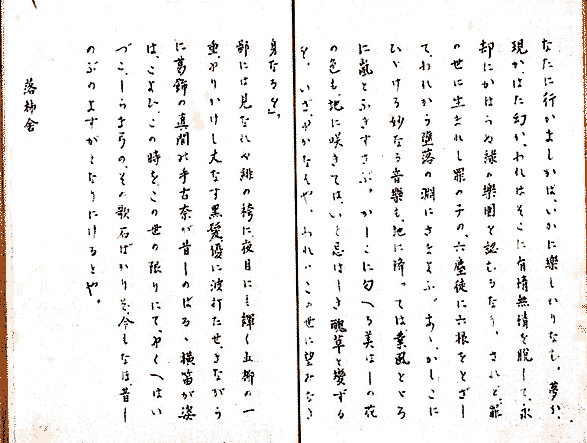 なたに行かましかば、いかに樂しかりなむ。夢か、
現かはた幻か、われはそこに有情無情を脱して、永
却にかはらぬ緑の樂園を認むるなり。されど、罪
の世に生まれし罪の子の、六塵徒に六根をとざし
て、われから墮落の淵にさまよふ。あゝ、かしこに
ひゞける妙なる音樂も、地に降つては業風となる
に嵐とふきすさぶ。かしこに匂へる美はしの花
の色も、地に咲きてはいと忌はしき醜草と變ずる
を。いざやかなたへ。われは、この世に望みなき
身なるを』。
都には見なれぬ緋の袴に、夜目にも輝く五柳の一
重ぶりかけし丈なす黒髪優に波打たせながら
に葛飾の真間の手古奈が昔しのばるゝ横笛が姿
は、こよひ、この時を、この世の限りにて、ゆくへはい
づこ、しら玉弓の、その歌石ばかりぞ、今もなほ昔し
のぶのよすがとなりにけるとや。
落柿舎